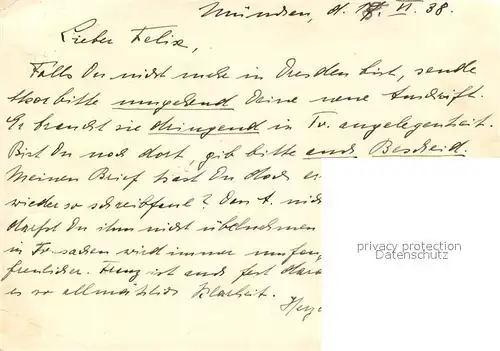 München, d. 18. VI. 38.
Lieber Felix,
Falls Du nicht mehr in Dresden bist, sende
bitte umgehend Deine neue Anschrift.
Er braucht sie dringend in Tr. angelegenheit.
Bist Du noch dort, gib bitte auch Bescheid.
Meinen Brief hast Du doch
wieder so schreibfaul? Den A. nich
darfst Du ihm nicht übelnehmen
in Tr. sachen wird immer umfan
freulicher. Franz ist auch fest dara
es so allmählich Klarheit.
Herz
privacy protection
Datenschutz